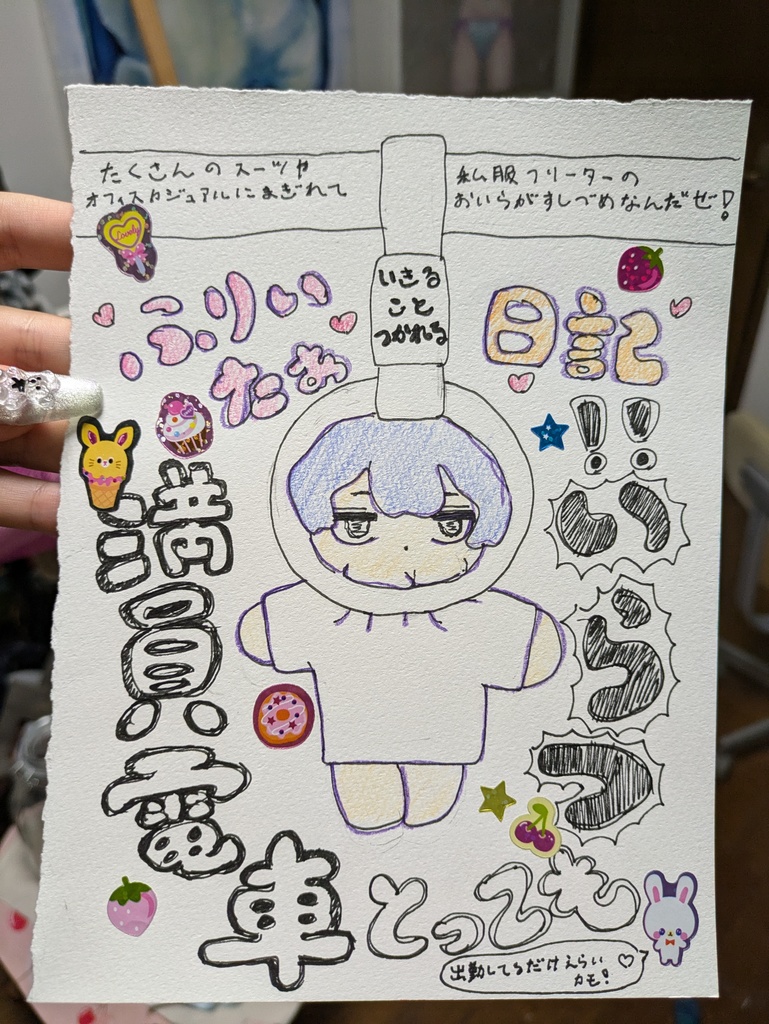 たくさんのスーツや
オフィスカジュアルにまぎれて
私服フリーターの
おいらがすしづめなんだぜ!
Lovely
いきる
こと
つかれる
ふりぃ
たあ
日記
満員電車
とっても
いらつ!!
出勤してるだけえらい
カモ! ♡